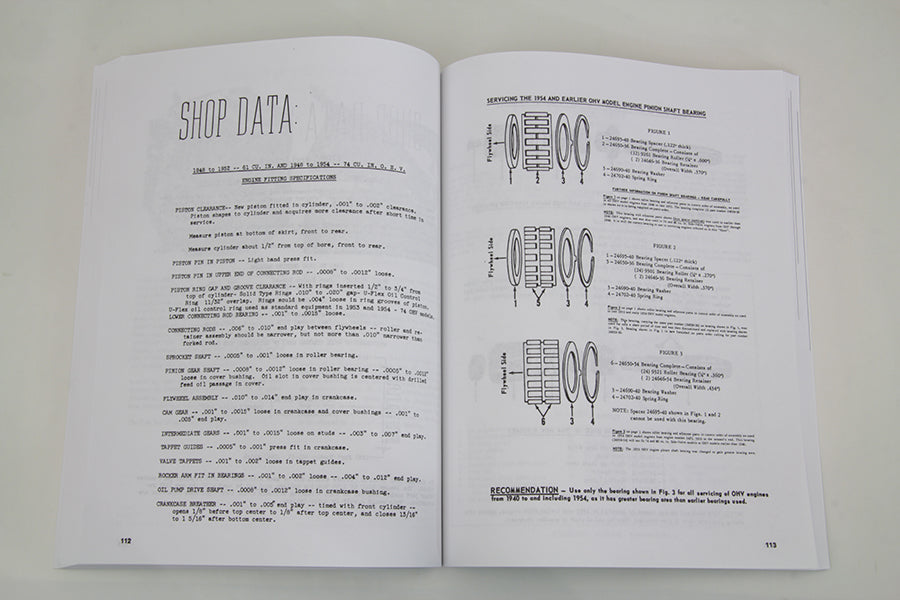 SHOP DATA:
1948 to 1952 -- 61 CU. IN. AND 1948 to 1954 -- 74 CU. IN. O. H. V.
ENGINE FITTING SPECIFICATIONS
PISTON CLEARANCE-- New piston fitted in cylinder, .001" to .002" clearance.
Piston shapes to cylinder and acquires more clearance after short time in
service.
Measure piston at bottom of skirt, front to rear.
Measure cylinder about 1/2" from top of bore, front to rear.
PISTON PIN IN PISTON -- Light hand press fit.
PISTON PIN IN UPPER END OF CONNECTING ROD -- .0008" to .0012" loose.
PISTON RING GAP AND GROOVE CLEARANCE -- With rings inserted 1/2" to 3/4" from
top of cylinder- Solid Type Rings .010" to .020" gap- U-Flex Oil Control
Ring 11/32" overlap. Rings sould be .004" loose in ring grooves of piston.
U-Flex oil control ring used as standard equipment in 1953 and 1954 - 74 OHV models.
LOWER CONNECTING ROD BEARING -- .001" to .0015" loose.
CONNECTING RODS -- .006" to .010" end play between flywheels -- roller and re-
tainer assembly should be narrower, but not more than .010" narrower than
forked rod.
SPROCKET SHAFT -- .0005" to .001" loose in roller bearing.
PINION GEAR SHAFT -- .0008" to .0012" loose in roller bearing -- .0005" to .0012"
loose in cover bushing. Oil slot in cover bushing is centered with drilled
feed oil passage in cover.
FLYWHEEL ASSEMBLY -- .010" to .014" end play in crankcase.
CAM GEAR -- .001" to .0015" loose in crankcase and cover bushings -- .001" to
.005" end play.
INTERMEDIATE GEARS -- .001" to .0015" loose on studs -- .003" to .007" end play.
TAPPET GUIDES -- .0005" to .001" press fit in crankcase.
VALVE TAPPETS -- .001" to .002" loose in tappet guides.
ROCKER ARM FIT IN BEARINGS -- .001" to .002" loose -- .004" to .012" end play.
OIL PUMP DRIVE SHAFT -- .0008" to .0012" loose in crankcase bushing.
CRANKCASE BREATHER -- .001" to .005" end play -- timed with front cylinder --
opens 1/8" before top center to 1/8" after top center, and closes 13/16"
to 1 5/16" after bottom center.
112
SERVICING THE 1954 AND EARLIER OHV MODEL ENGINE PINION SHAFT BEARING
Flywheel Side
1 2 3 4
FIGURE 1
1—24695-40 Bearing Spacer (.122" thick)
2—24650-36 Bearing Complete—Consists of
(2) 24646-36 Bearing Retainer
(Overall Width .570")
3—24690-40 Bearing Washer
4—24702-40 Spring Ring
FURTHER INFORMATION ON PINION SHAFT BEARINGS — READ CAREFULLY
Flywheel Side
1 2 3 4
FIGURE 2
1—24695-40 Bearing Spacer (.122" thick)
(24) 9501 Bearing Roller
(2) 24646-36 Bearing Retainer
3—24690-40 Bearing Washer
4—24702-40 Spring Ring
Flywheel Side
6 3 4
FIGURE 3
6—24650-54 Bearing Complete—Consists of
(24) 9521 Roller Bearing
(2) 24646-54 Bearing Retainer
(Overall Width .434")
3—24690-40 Bearing Washer
4—24702-40 Spring Ring
NOTE: Spacer 24695-40 shown in Figs. 1 and 2
cannot be used with this bearing.
RECOMMENDATION — Use only the bearing shown in Fig. 3 for all servicing of OHV engines
from 1940 to and including 1954, as it has greater bearing area than earlier bearings used.
113